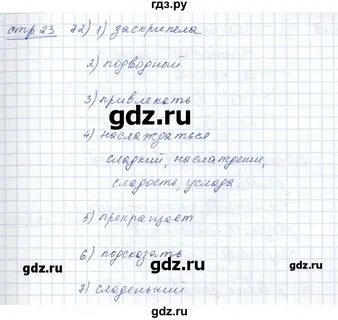 gdz.ru
стр 23 72) 1) заскрипела
2) подводный
gdz.ru gdz.ru
3) привлекать
4) наслаждаться
сладкий, наслаждение,
сладость, услада
gdz.ru gdz.ru
5) прекращает
6) подсказать
gdz.ru gdz.ru
7) сладенький